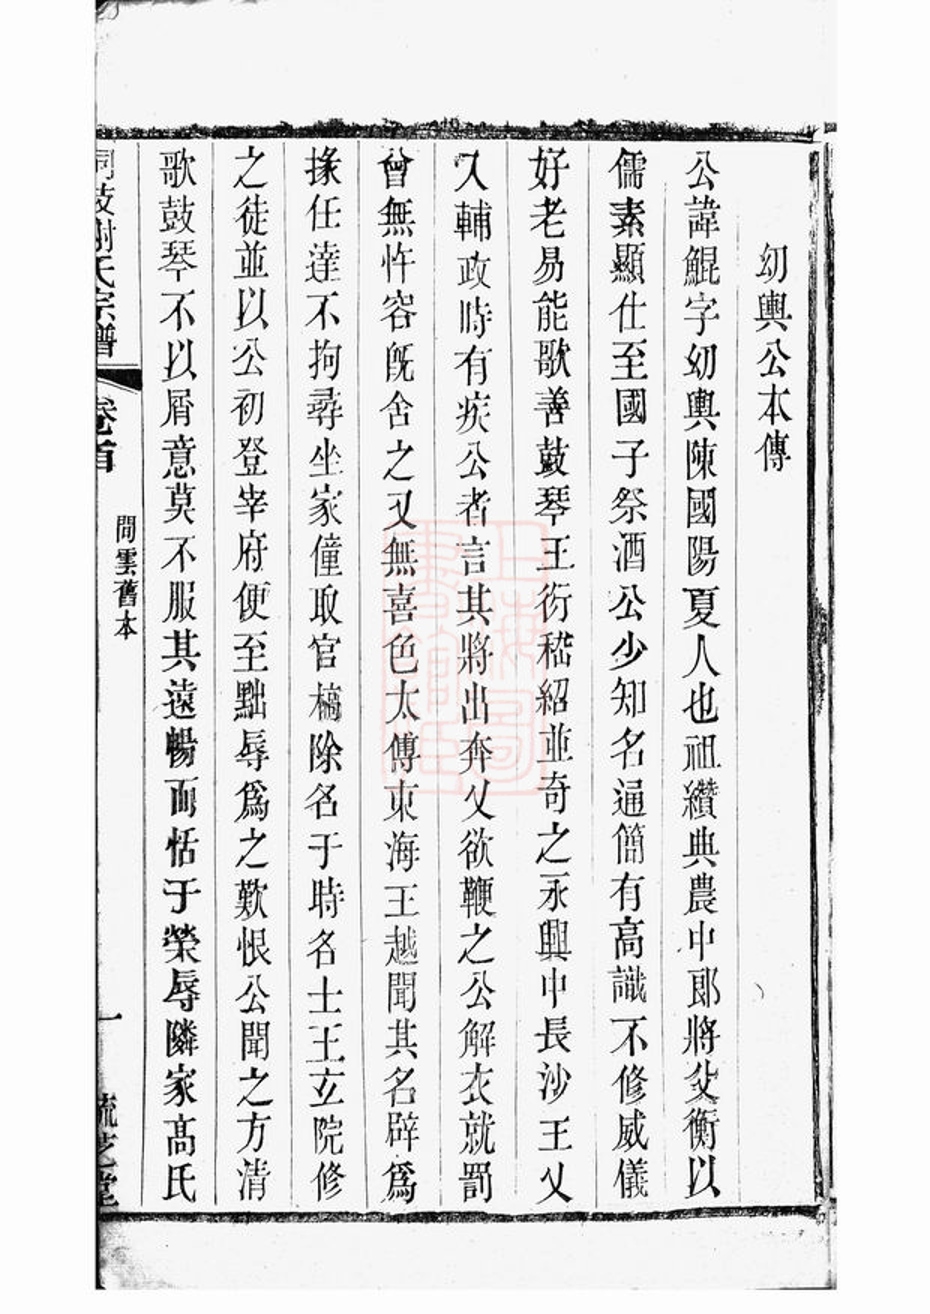 幼輿公本傳
公諱鯤字幼輿陳國陽夏人也祖纘典農中郎將父衡以
儒素顯仕至國子祭酒公少知名通簡有高識不修威儀
好老易能歌善鼓琴王衍嵇紹並奇之永興中長沙王乂
入輔政時有疾公者言其將出奔乂欲鞭之公解衣就罰
曾無忤容既舍之又無喜色太傅東海王越聞其名辟爲
掾任達不拘尋坐家僮取官槁除名于時名士王玄阮修
之徒並以公初登宰府便至黜辱爲之歎恨公聞之方清
歌鼓琴不以屑意莫不服其遠暢而恬于榮辱隣家高氏
謝氏宗譜
卷首
間雲舊本
一
毓芝堂
上海圖書館藏